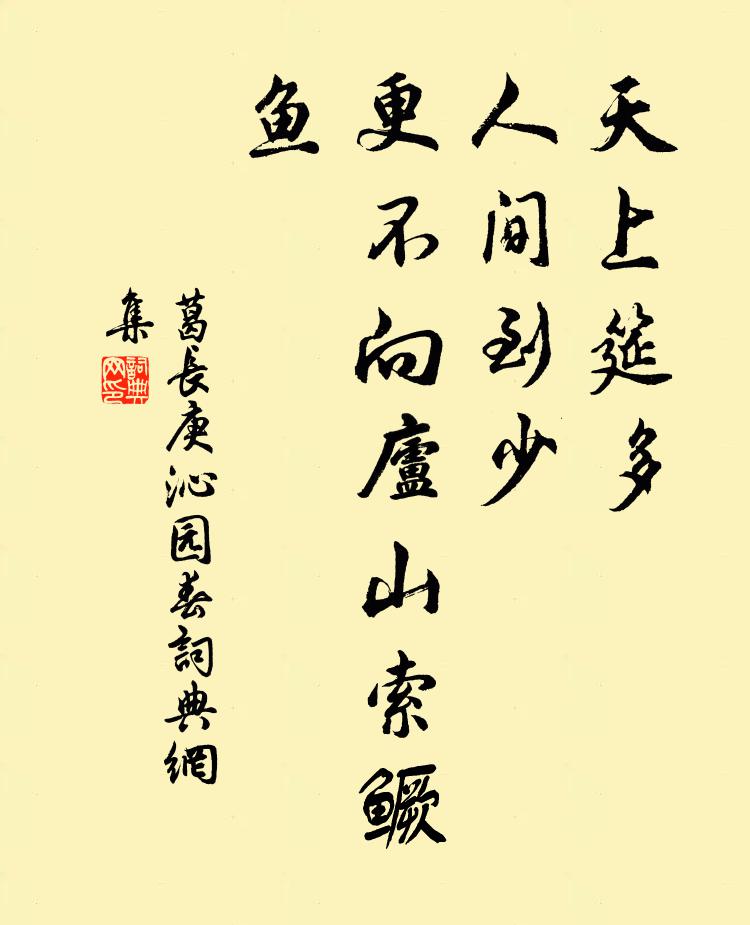 天上筵多
人间到少
更不向廬山索鳜
鱼
葛長庚沁园春詞典網
集
詞典
网印